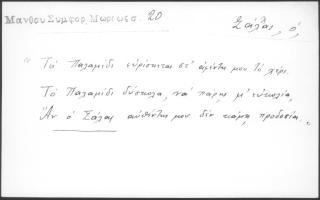 Μάνθου Συμφορ. Μωριως. 20
Σάλαι, ὁ,
" Τὸ Παλαμίδι εὑρίσκεται στ' ἀφέντη μου τὸ χέρι.
Τὸ Παλαμίδι δύσκολα, νὰ πάρῃς μ' εὐκολία,
Ἂν ὁ Σάλαι αὐθέντη μου δὲν κάμῃ προδοσία.